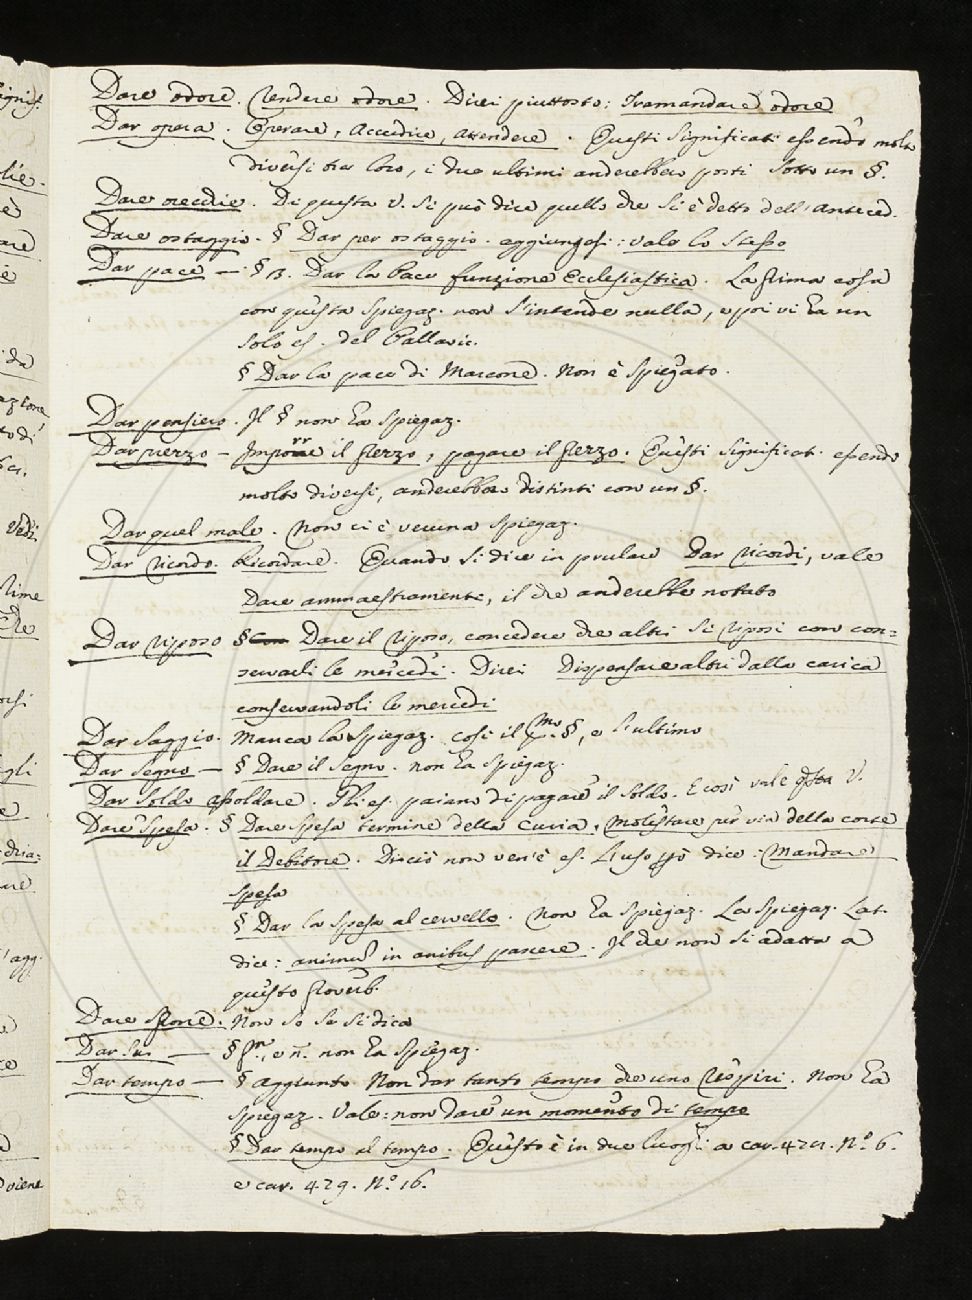 Dare odore. Rendere odore. Direi piuttosto: Tramandare odore
Dar opera. Operare, Accudire, Attendere. Questi significati essendo molto
diversi tra loro, i due ultimi anderebbero posti sotto un §.
Dare orecchie. Di questa v. si può dire quello che si è detto dell' anteced.
Dare ostaggio. § Dar per ostaggio. aggiungesi: vale lo stesso
Dar pace — § 2. Dar la Pace funzione Ecclesiastica. La prima cosa
con questa spiegaz. non s'intende nulla, e poi vi ha un
solo es. del Pallavic.
§ Dar la pace di Marcone. Non è spiegato.
Dar pensiero. Il § non ha spiegaz.
Dar prezzo — Imporre il prezzo, pagare il prezzo. Questi significat. essendo
molto diversi, anderebbero distinti con un §.
Dar quel male. Non ci è veruna spiegaz.
Dar ricordo. Ricordare. Quando si dice in prulare Dar ricordi, vale
Dare ammaestramente, il che anderebbe notato
Dar riposo § Dare il riposo, concedere che altri si riposi con con=
servarli le mercedi. Direi Dispensare altri dalla carica
conservandoli le mercedi
Dar saggio. Manca la spiegaz. così il pmo §, e l'ultimo
Dar segno — § Dare il segno. non ha spiegaz.
Dar soldo assoldare. Gli es. paiano di pagare il soldo. E così vale qsta v.
Dare spesa. § Dare spesa termine della Curia, Molestare per via della corte
il Debitore. Dicciò non ven'è es. L'uso pò dice: Mandare
spesa
§ Dar la spesa al cervello. Non ha spiegaz. La spiegaz. Lat.
dice: animum in anibus pascere. Il che non si adatta a
questo proverb.
Dare sporte. Non so se si dica
Dar su — § pm., e n. non ha spiegaz.
Dar tempo — § aggiunto Non dar tanto tempo che uno respiri. Non ha
spiegaz. Vale: non dare un momento di tempo
§ Dar tempo al tempo. Questo è in due luoghi a car. 424. N.o 6.
e car. 429. N.o 16.